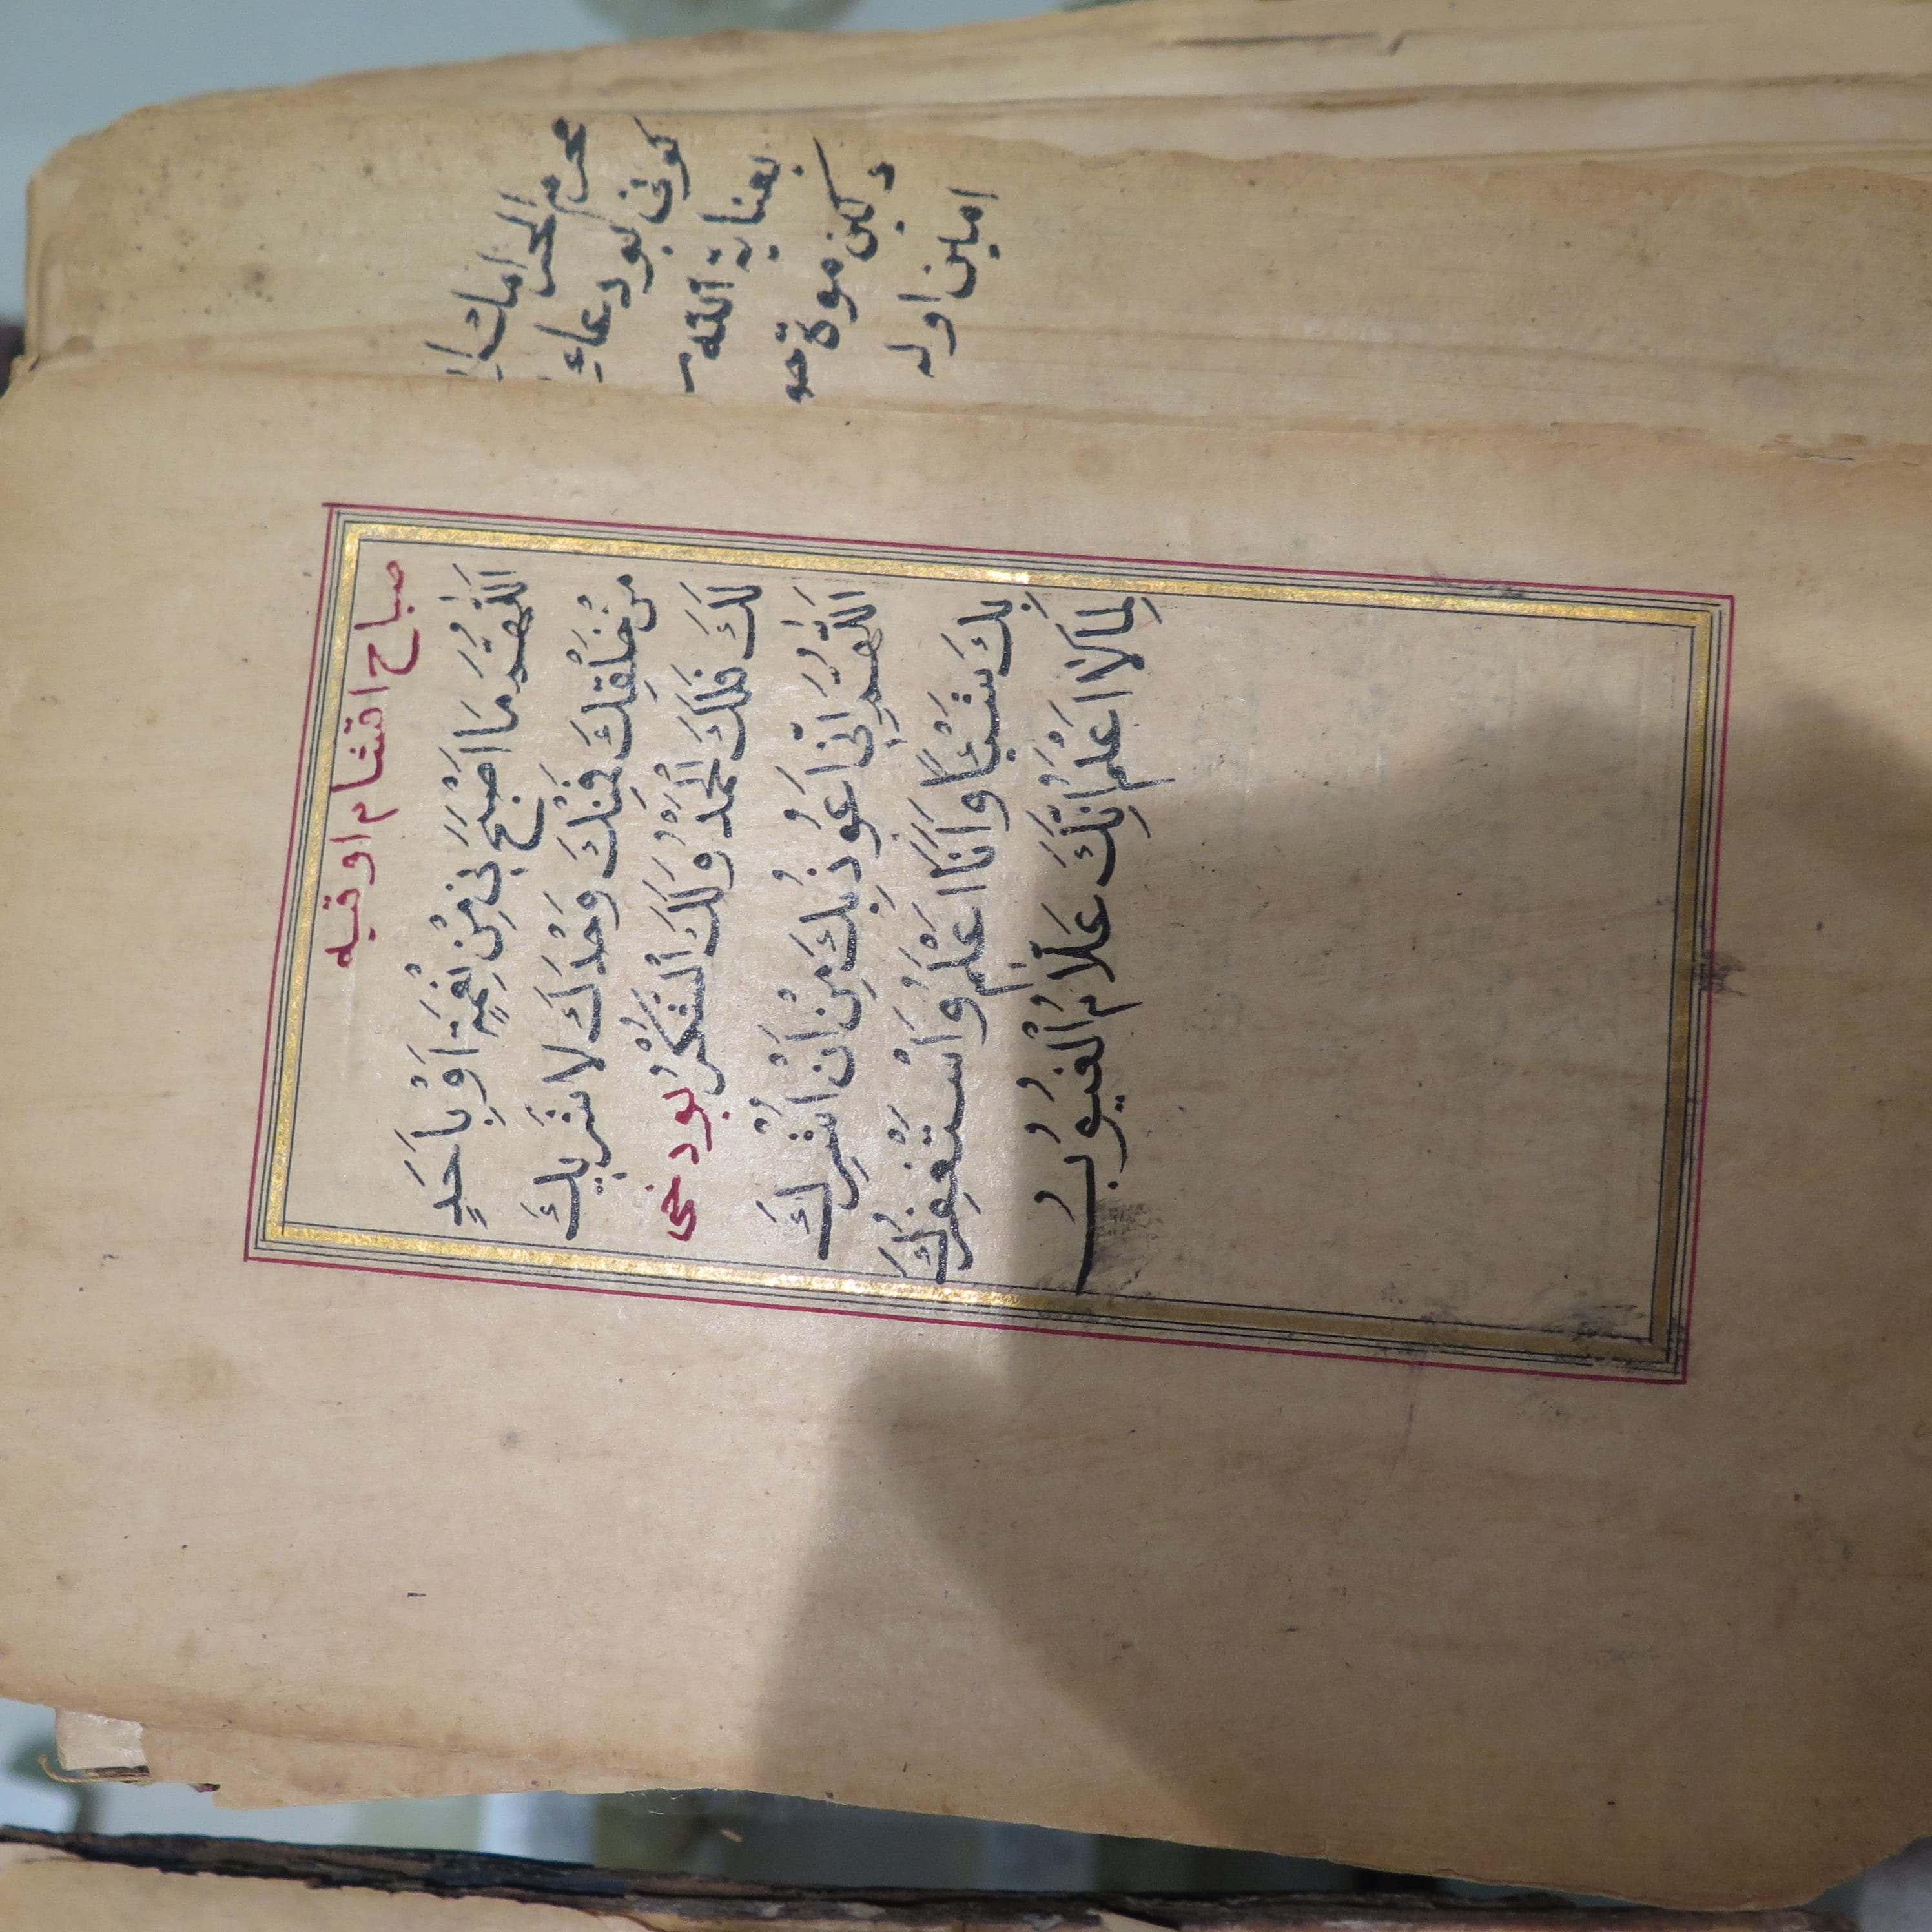 صباح اقشام اوقيه
اَللّٰهُمَّ مَا اَصْبَحَ بِي مِنْ نِعْمَةٍ اَوْ بِاَحَدٍ
مِنْ خَلْقِكَ فَمِنْكَ وَحْدَكَ لَا شَرِيكَ
لَكَ فَلَكَ الْحَمْدُ وَلَكَ الشُّكْرُ بودخى
اَللّٰهُمَّ اِنِّى اَعُوذُ بِكَ مِنْ اَنْ اُشْرِكَ
بِكَ شَيْئًا وَاَنَا اَعْلَمُ وَاَسْتَغْفِرُكَ
لِمَا لَا اَعْلَمُ اِنَّكَ عَلَّامُ الْغُيُوبُ
محرم الحرامك
كونى بو دعاء
بعناية الله
دكين موة
امين اوله